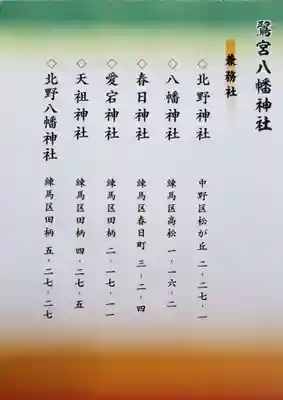 鷺宮八幡神社
兼務社
◇北野神社 中野区松が丘 二-二七-一
◇八幡神社 練馬区高松 一-一六-二
◇春日神社 練馬区春日町 三-二-四
◇愛宕神社 練馬区田柄 二-一七-一一
◇天祖神社 練馬区田柄 四-二七-五
◇北野八幡神社 練馬区田柄 五-二七-二七